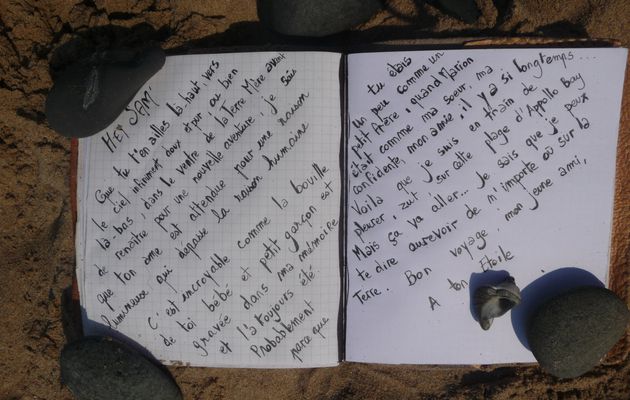 HEY SAM'
Que tu t'en ailles là-haut vers
le ciel infiniment doux et pur ou bien
là-bas, dans le ventre de la Terre Mère avant
de renaître pour une nouvelle aventure, je sais
que ton âme est attendue pour une raison
lumineuse qui dépasse la raison humaine
C'est incroyable comme la bouille
de toi bébé et petit garçon est
gravée dans ma mémoire
et l'a toujours été.
Probablement
parce que
tu étais
un peu comme un
petit frère, quand Marion
était comme ma soeur, ma
confidente, mon amie, il y a si longtemps...
Voilà que je suis en train de
pleurer, zut, sur cette plage d'Appollo Bay
Mais ça va aller... Je sais que je peux
te dire aurevoir de n'importe où sur la
Terre. Bon voyage, mon jeune ami,
A ton Étoile